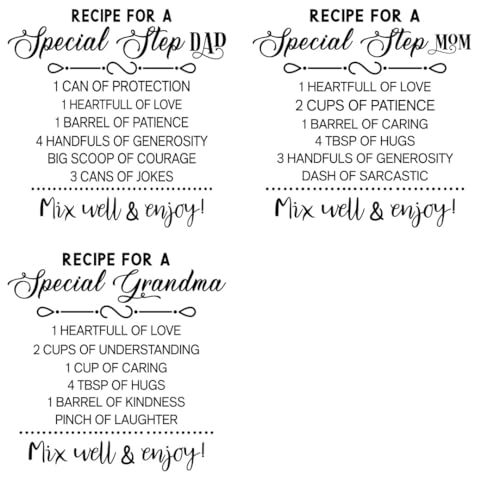 RECIPE FOR A
Special Step DAD
1 CAN OF PROTECTION
1 HEARTFULL OF LOVE
1 BARREL OF PATIENCE
4 HANDFULS OF GENEROSITY
BIG SCOOP OF COURAGE
3 CANS OF JOKES
Mix well & enjoy!
RECIPE FOR A
Special Step MOM
1 HEARTFULL OF LOVE
2 CUPS OF PATIENCE
1 BARREL OF CARING
4 TBSP OF HUGS
3 HANDFULS OF GENEROSITY
DASH OF SARCASTIC
Mix well & enjoy!
RECIPE FOR A
Special Grandma
1 HEARTFULL OF LOVE
2 CUPS OF UNDERSTANDING
1 CUP OF CARING
4 TBSP OF HUGS
1 BARREL OF KINDNESS
PINCH OF LAUGHTER
Mix well & enjoy!